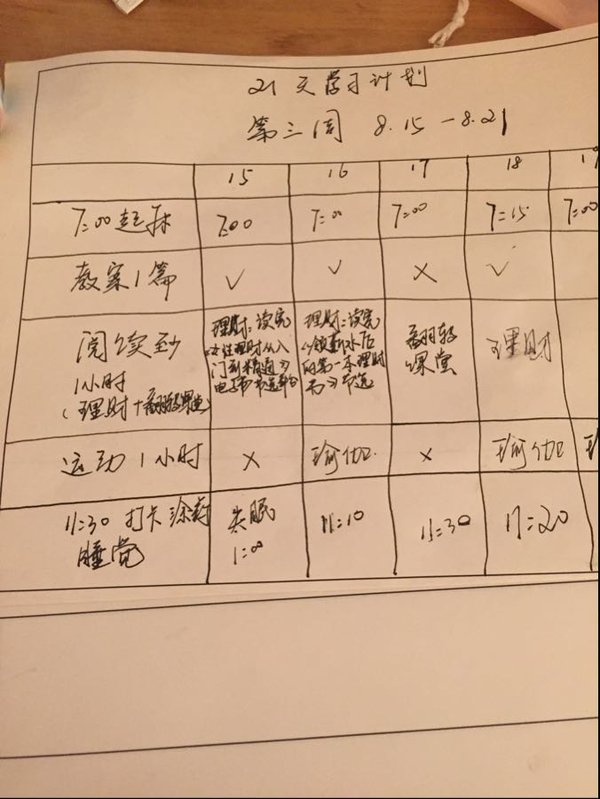 21天学习计划
第三周 8.15-8.21
15 16 17 18 19
7:00起床 7:00 7:00 7:00 7:15 7:00
教案1篇 ✓ ✓ × ✓
阅读到 理财:读完 理财:读完 翻转 理财
1小时 女性理财从入 领薪水后 课堂
(理财+翻转课堂) 门到精通 的第一本理财
电子书
运动1小时 × 瑜伽 × 瑜伽
11:30打卡涂药 失眠 11:10 11:30 11:20
睡觉 1:00